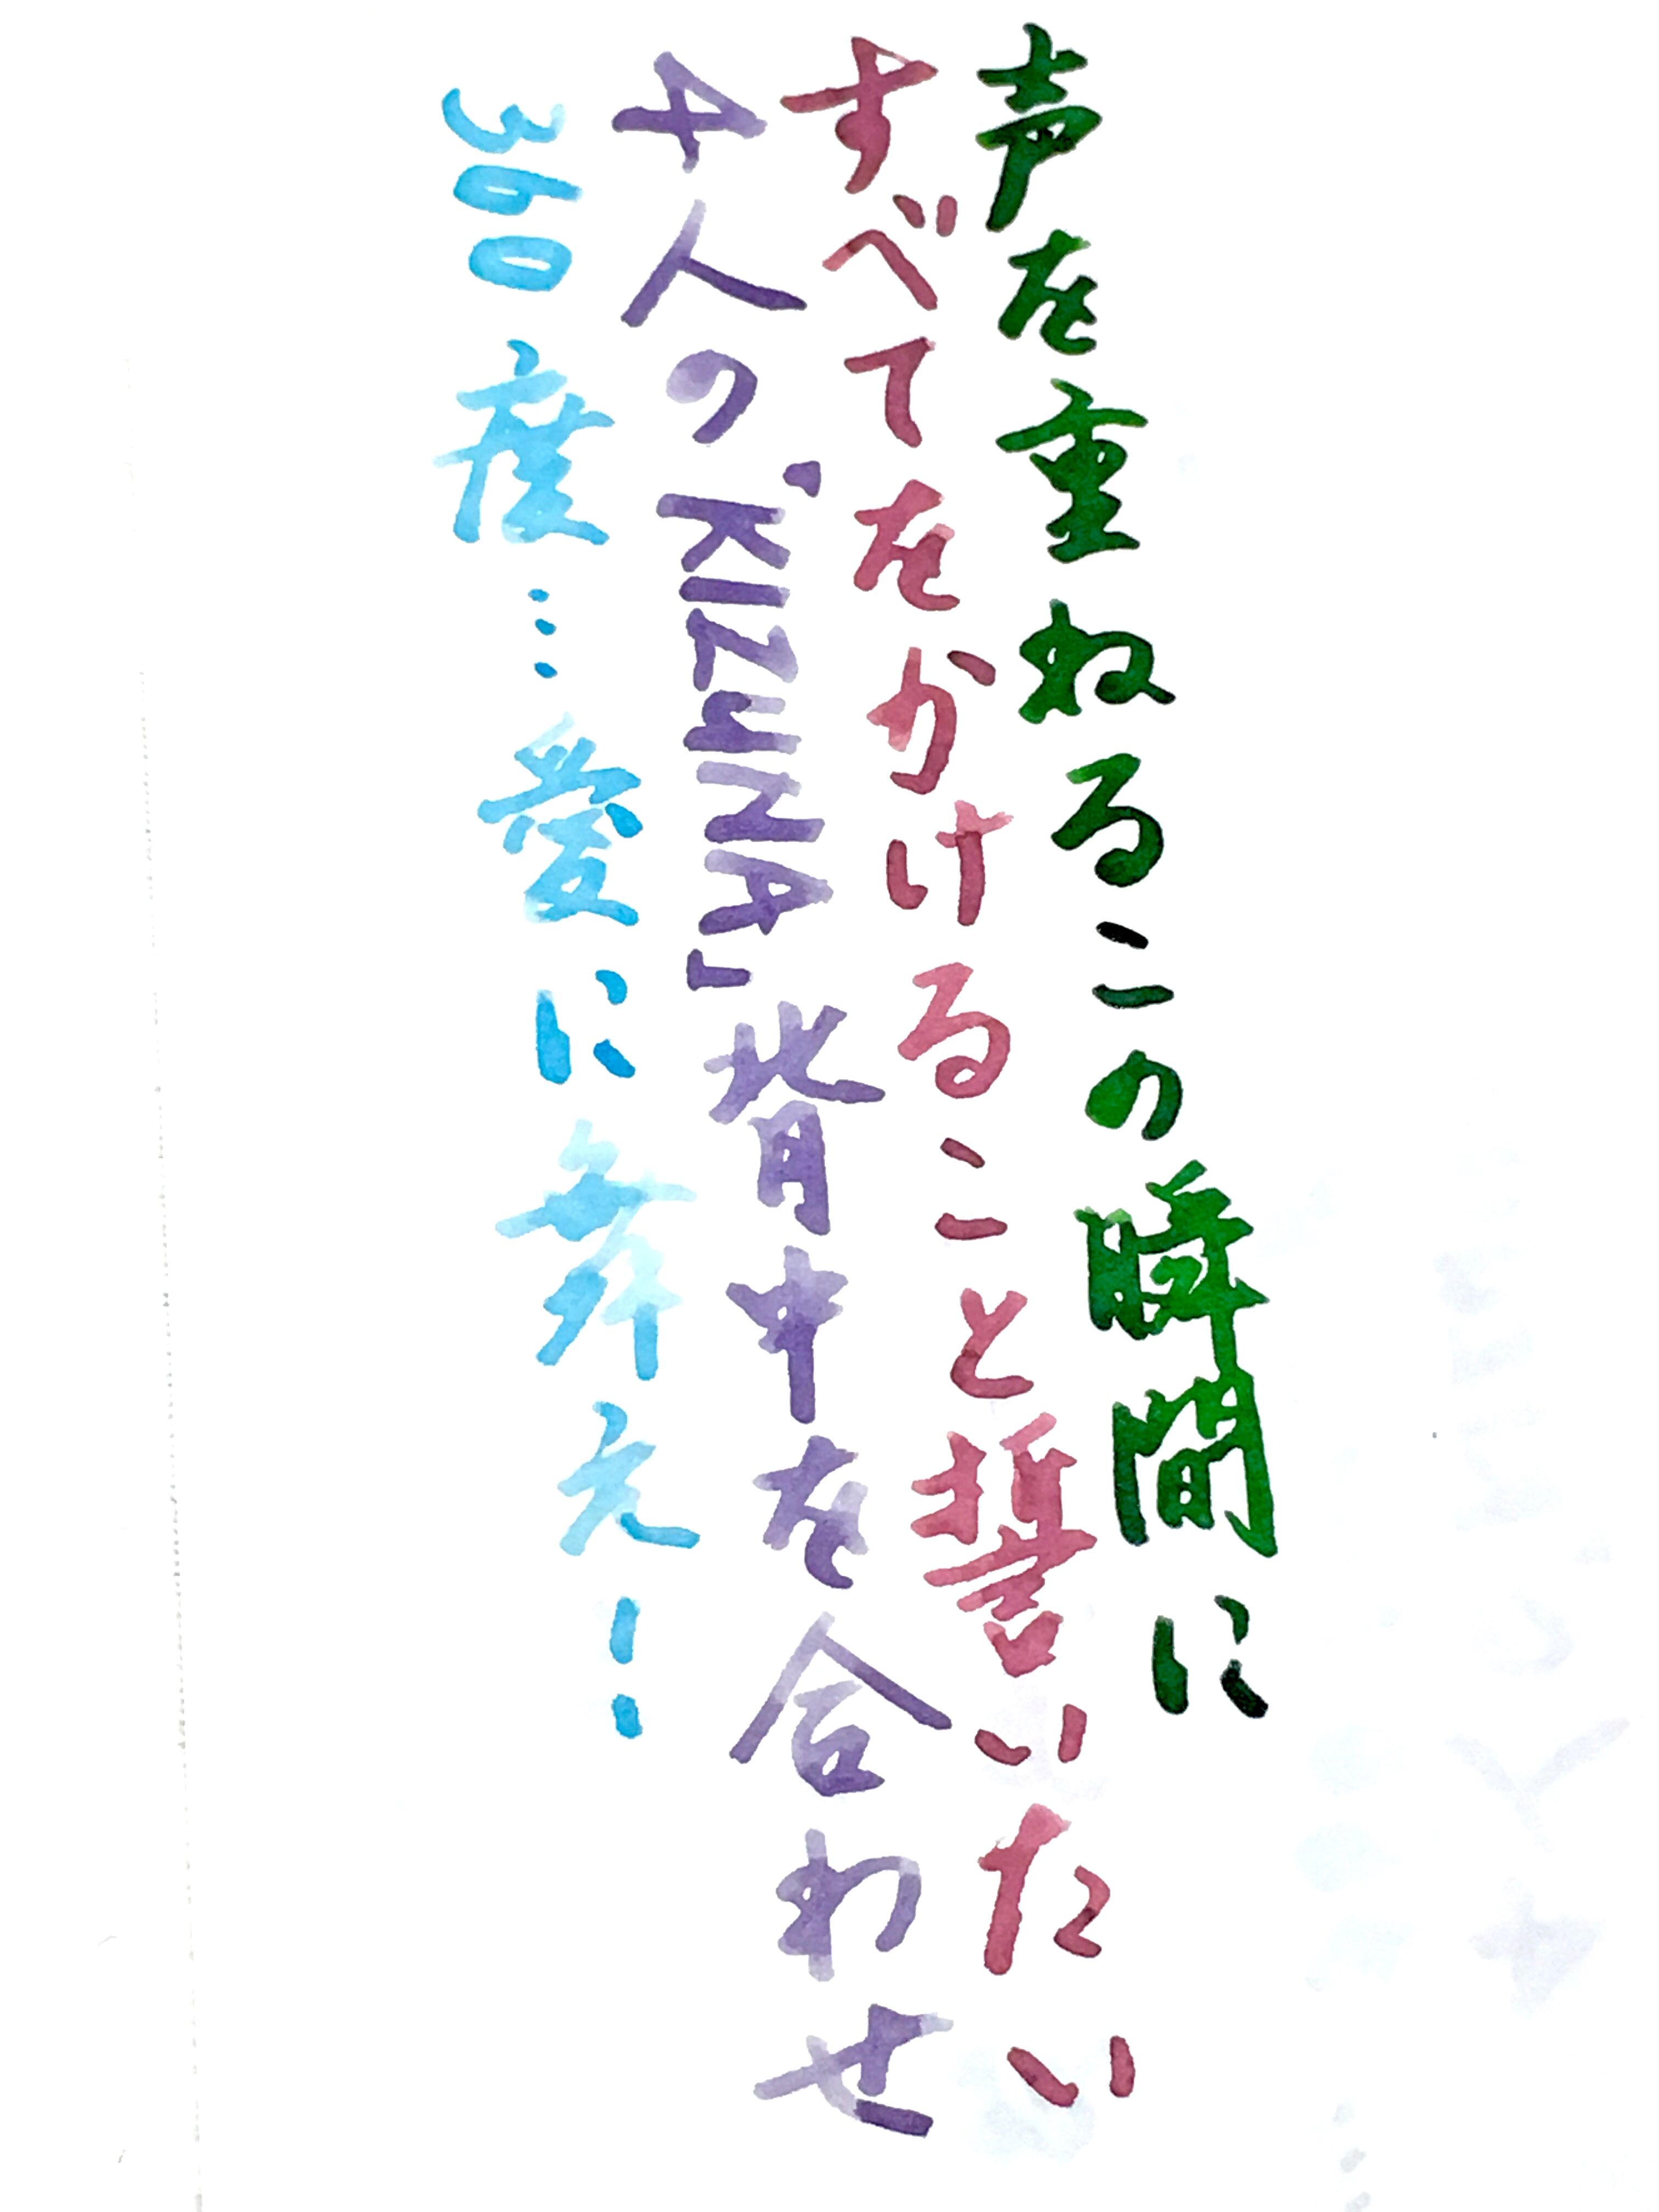 声を重ねるこの瞬間に
すべてをかけること誓いたい
4人の「KIZUNA」背中を合わせ
360度…愛に舞え!